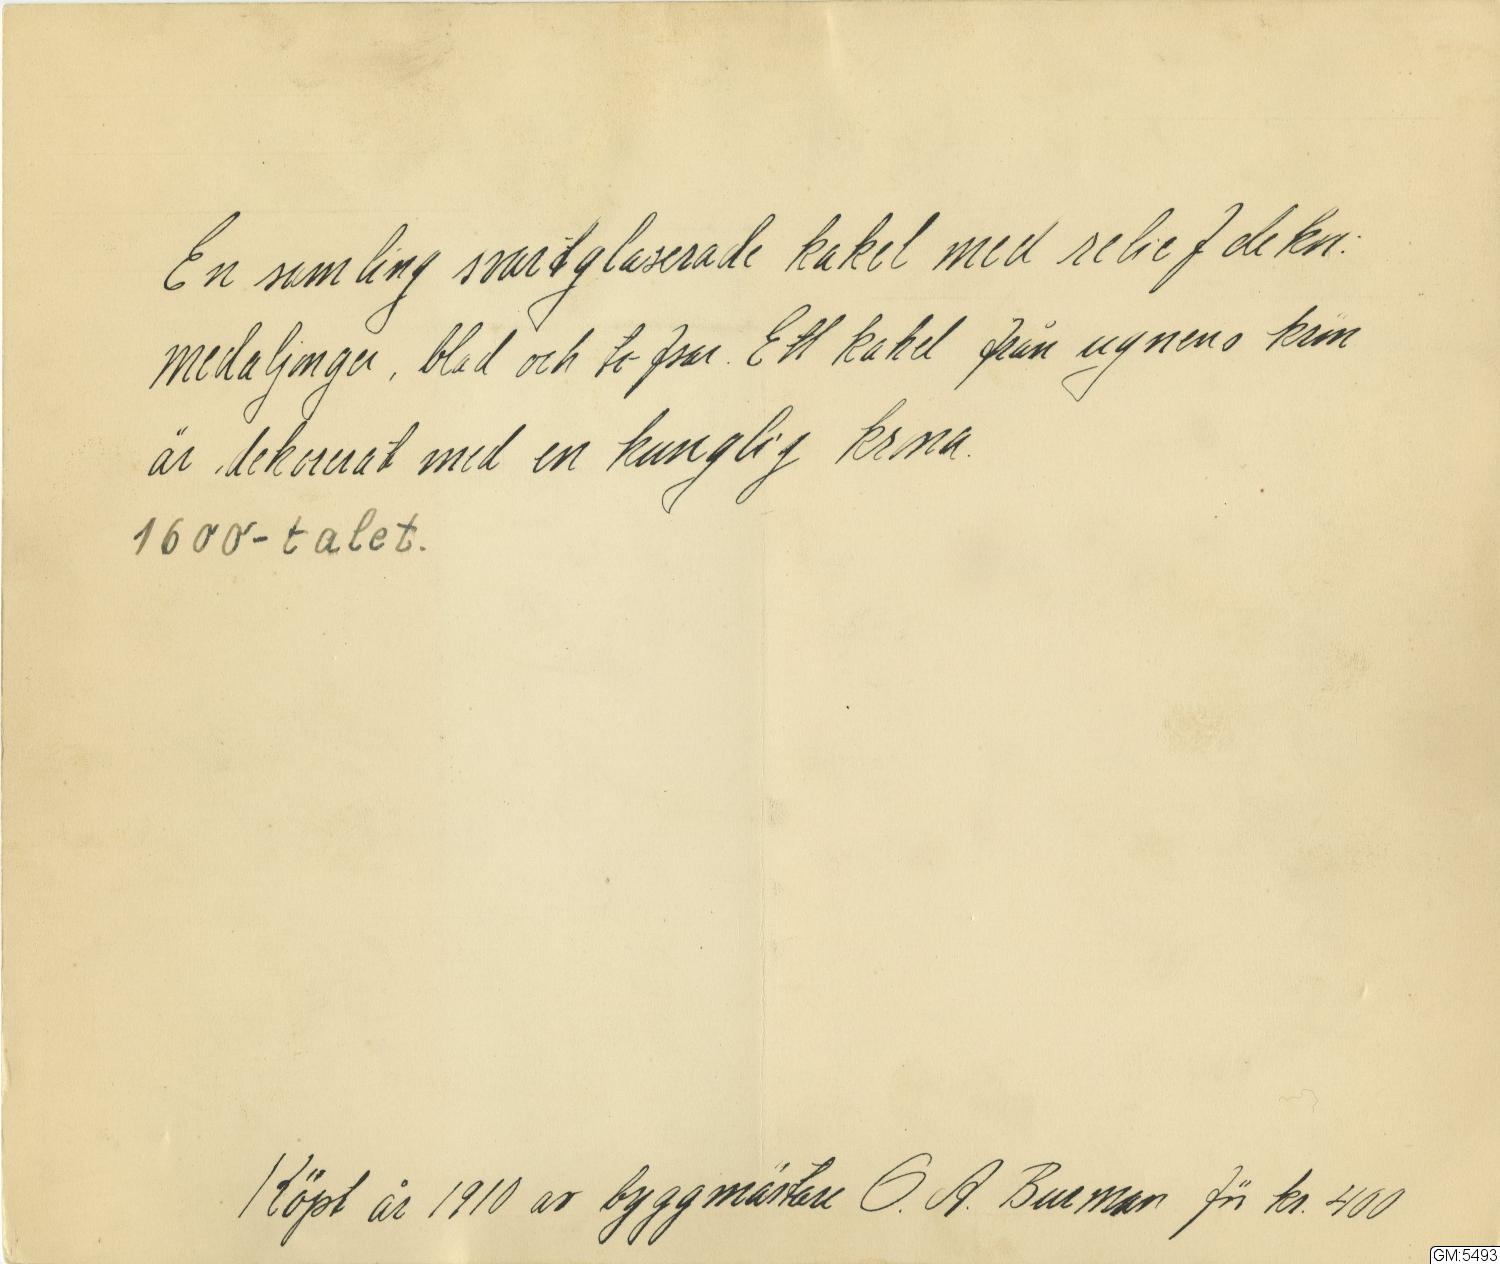 En samling svartglaserade kakel med reliefdekor:
medaljonger, blad och tofsar. Ett kakel från ugnens krön
är dekorerat med en kunglig krona.
1600-talet.
Köpt år 1910 av byggmästare O. A. Burman för kr. 400
GM:5493